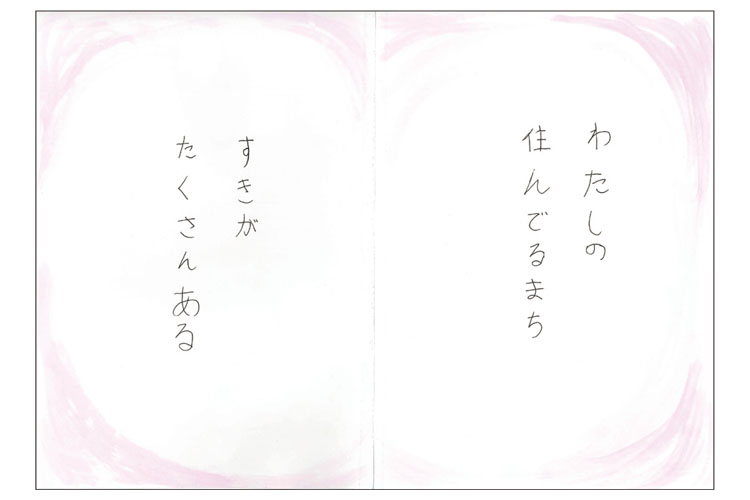 わたしの
住んでるまち
すきが
たくさんある